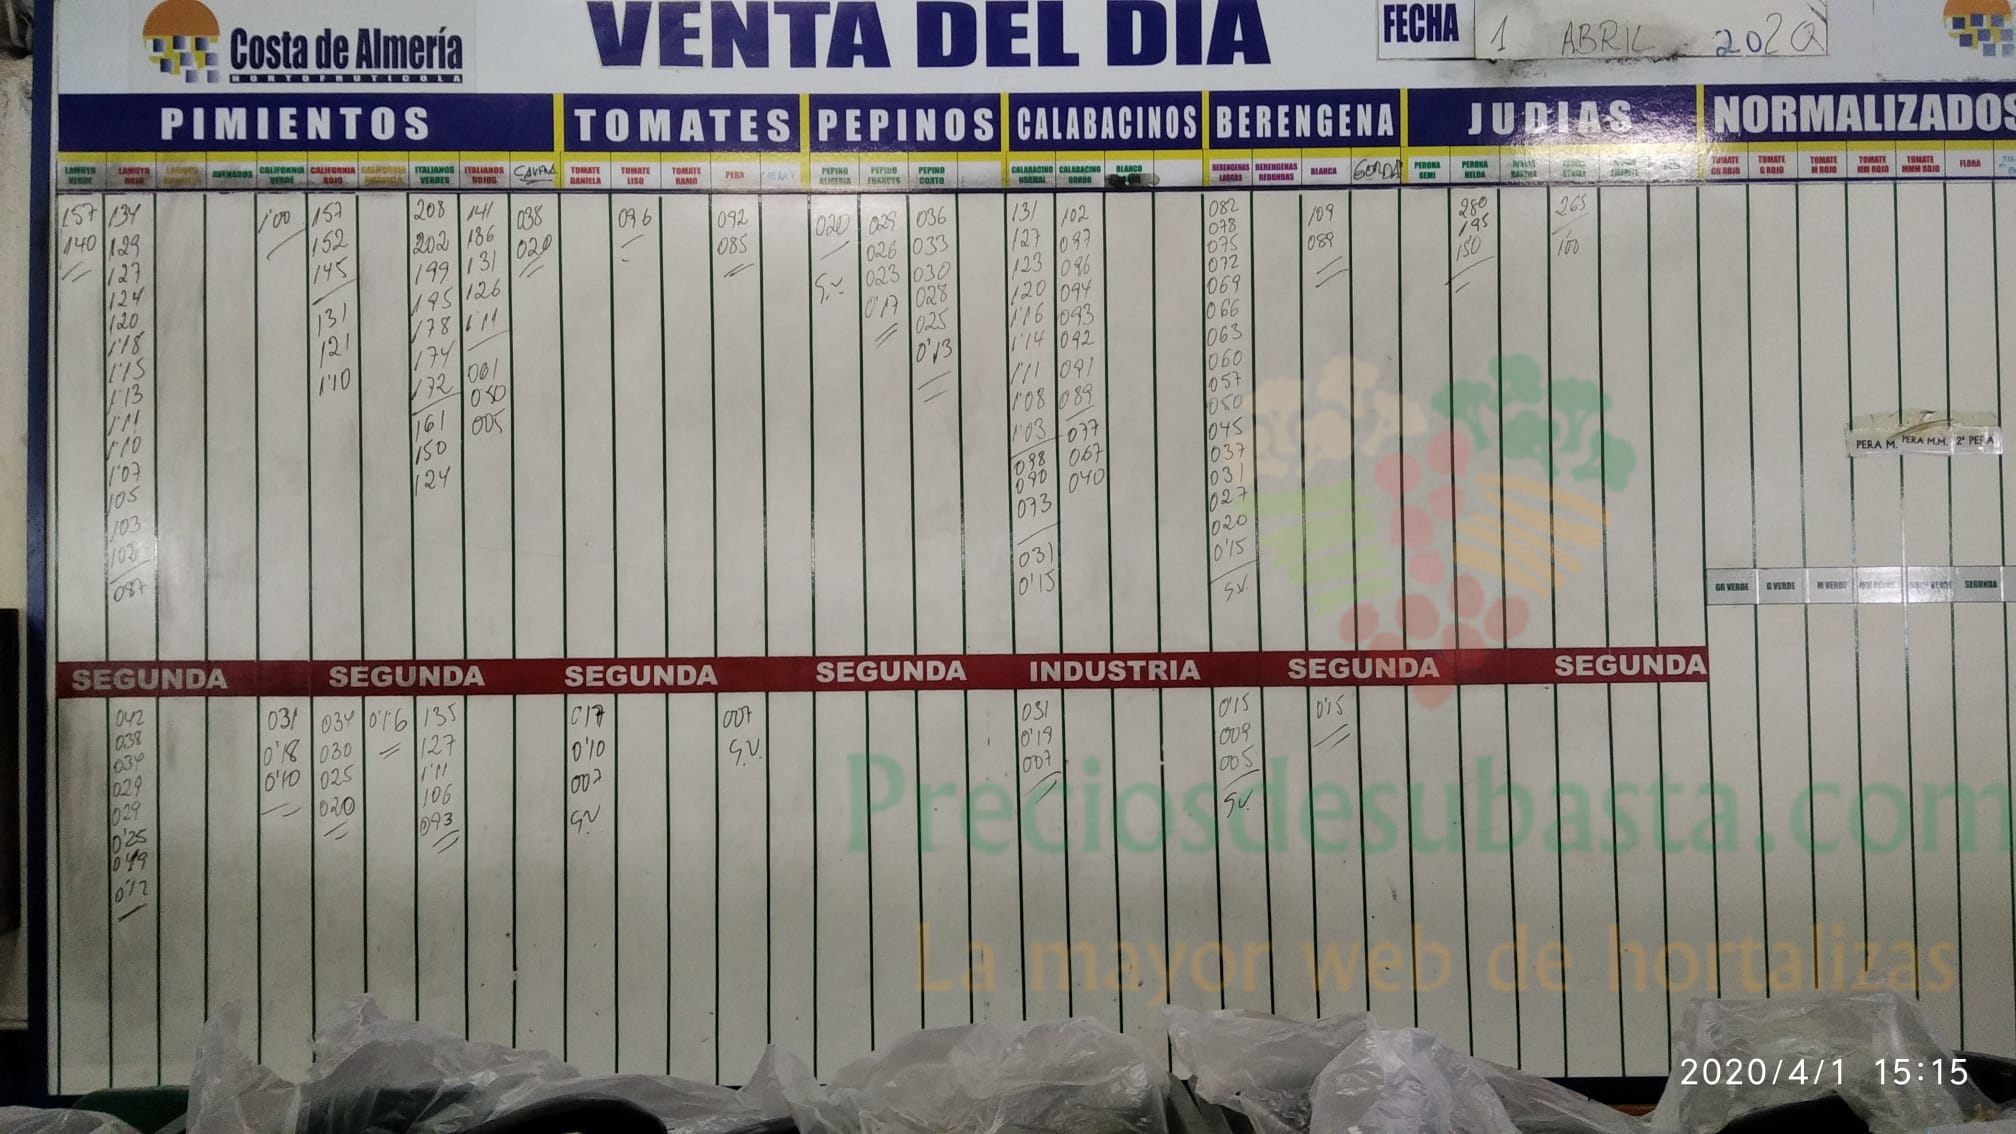 Costa de Almería
HORTOFRUTICOLA
VENTA DEL DIA
FECHA 1 ABRIL 2020
PIMIENTOS TOMATES PEPINOS CALABACINOS BERENGENA JUDIAS NORMALIZADOS
LAMUYO VERDE
LAMUYO ROJO
ASURADOS
CALIFORNIA VERDE
CALIFORNIA ROJO
CALIFORNIA AMARILLO
ITALIANOS VERDES
ITALIANOS ROJOS
TOMATE DANIELA
TOMATE LISO
TOMATE RAMO
PERA
PEPINO ALMERIA
PEPINO FRANCES
PEPINO CORTO
CALABACINO NORMAL
CALABACINO GORDO
BLANCO
BERENGENAS LARGAS
BERENGENAS REDONDAS
BLANCA
GORDA
PERONA SEMI
PERONA HELDA
TOMATE GG ROJO
TOMATE G ROJO
TOMATE M ROJO
TOMATE MM ROJO
TOMATE MMM ROJO
FLORA
157
140
134
129
127
124
120
1'18
1'15
1'13
1'11
1'10
1'07
105
103
102
087
1'00
157
152
145
131
121
1'10
208
202
199
195
178
174
172
161
150
124
141
136
131
126
1'11
050
005
038
020
096
092
085
020
S.V.
029
026
023
0'17
036
033
030
028
025
0'13
131
127
123
120
1'16
1'14
1'11
1'08
1'03
098
090
073
031
0'15
102
097
096
094
093
092
091
089
077
067
040
082
078
075
072
069
066
063
060
057
050
045
037
031
027
020
0'15
S.V.
109
089
280
195
150
265
100
PERA M. PERA M.M. 2ª PERA
GG VERDE G VERDE M VERDE SEGUNDA
SEGUNDA SEGUNDA SEGUNDA SEGUNDA INDUSTRIA SEGUNDA SEGUNDA
042
038
034
029
029
0'25
0'19
0'12
031
0'18
0'10
034
030
025
020
0'16
135
127
1'11
106
093
017
0'10
007
S.V.
007
S.V.
031
0'19
007
0'15
009
005
S.V.
0'15
Preciosdesubasta.com
La mayor web de hortalizas
2020/4/1 15:15